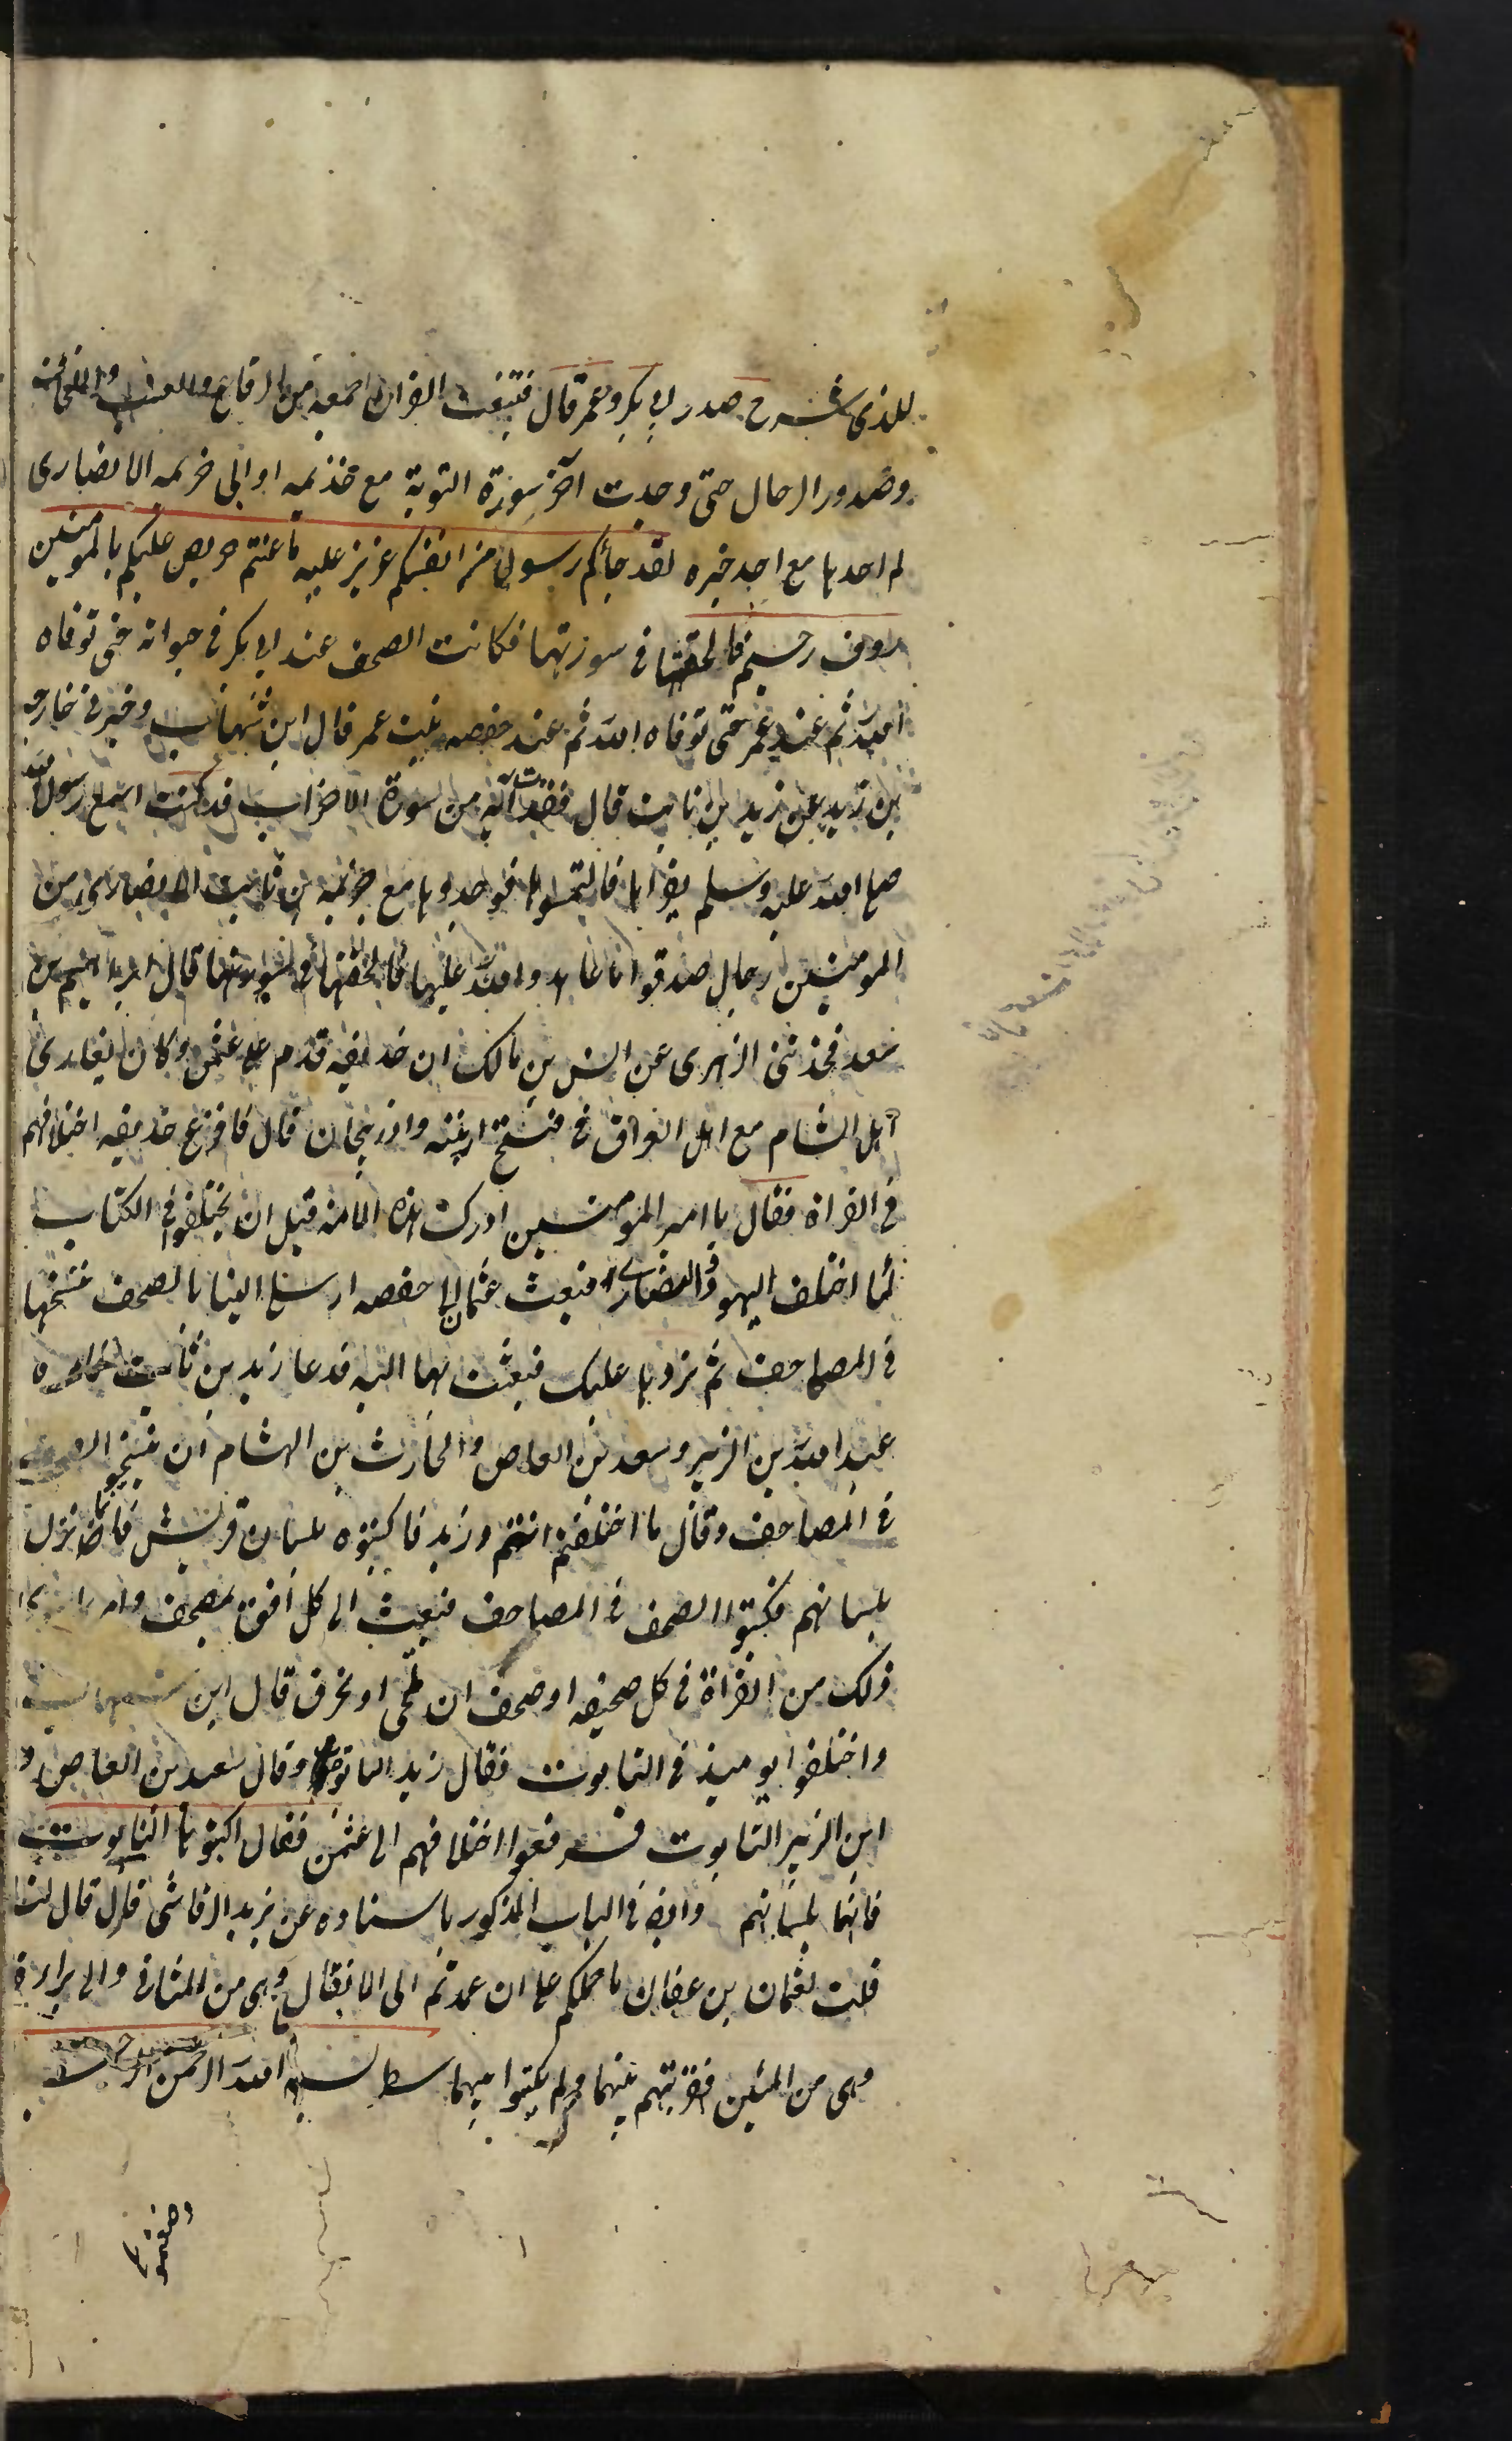 للذی شرح صدر ابی بکر و عمر قال فتتبعت القران اجمعه من الرقاع والعسب واللخاف
وصدور الرجال حتی وجدت آخر سورة التوبة مع خذیمه او ابی خزیمه الانصاری
لم اجدها مع احد خیره لقد جائکم رسول من انفسکم عزیز علیه ماعنتم حریص علیکم بالمومنین
روف رحیم فالحقتها فی سورتها فکانت الصحف عند ابی بکر فی حیواته حتی توفاه
الله ثم عند عمر حتی توفاه الله ثم عند حفصه بنت عمر قال ابن شهاب وخبرنی خارجه
بن زید عن زید بن ثابت قال فقدت آیه من سورة الاحزاب قد کنت اسمع رسول الله
صلی الله علیه وسلم یقراها فالتمسوها فوجدوها مع خزیمه بن ثابت الانصاری من
المومنین رجال صدقوا ما عاهدوا الله علیها فالحقتها فی سورتها قال ابراهیم بن
سعد فحدثنی الزهری عن انس بن مالک ان حذیفه قدم علی عثمن وکان یغازی
اهل الشام مع اهل العراق فی فتح ارمینه واذربیجان قال فافزع حذیفه اختلافهم
فی القراة فقال یا امیر المومنین ادرک هذه الامه قبل ان یختلفوا فی الکتاب
کما اختلف الیهود والنصاری فبعث عثمان الی حفصه ارسلی الینا بالصحف ننسخها
فی المصاحف ثم نردها علیک فبعثت بها الیه فدعا زید بن ثابت
عبد الله بن الزبیر وسعد بن العاص والحارث بن الهشام ان ینسخوا
فی المصاحف وقال ما اختلفتم انتم وزید فاکتبوه بلسان قریش فانما نزل
بلسانهم فکتبوا الصحف فی المصاحف فبعث الی کل افق بمصحف وامر
ذلک من القراة فی کل صحیفه او صحف ان تمحی او تحرق قال ابن شهاب
واختلفوا یومیذ فی التابوت فقال زید التابوه وقال سعید بن العاص و
ابن الزبیر التابوت فرفعوا اختلافهم الی عثمن فقال اکتبوها التابوت
فانها بلسانهم وایضا فی الباب المذکور باسناده عن یزید الرقاشی قال قال لنا
قلت لعثمان بن عفان ما حملکم علی ان عمدتم الی الانفال وهی من المثانی والی براءة
وهی من المئین فقربتهم بینهما ولم یکتبوا بینهما سطر بسم الله الرحمن الرحیم
وضعتموها